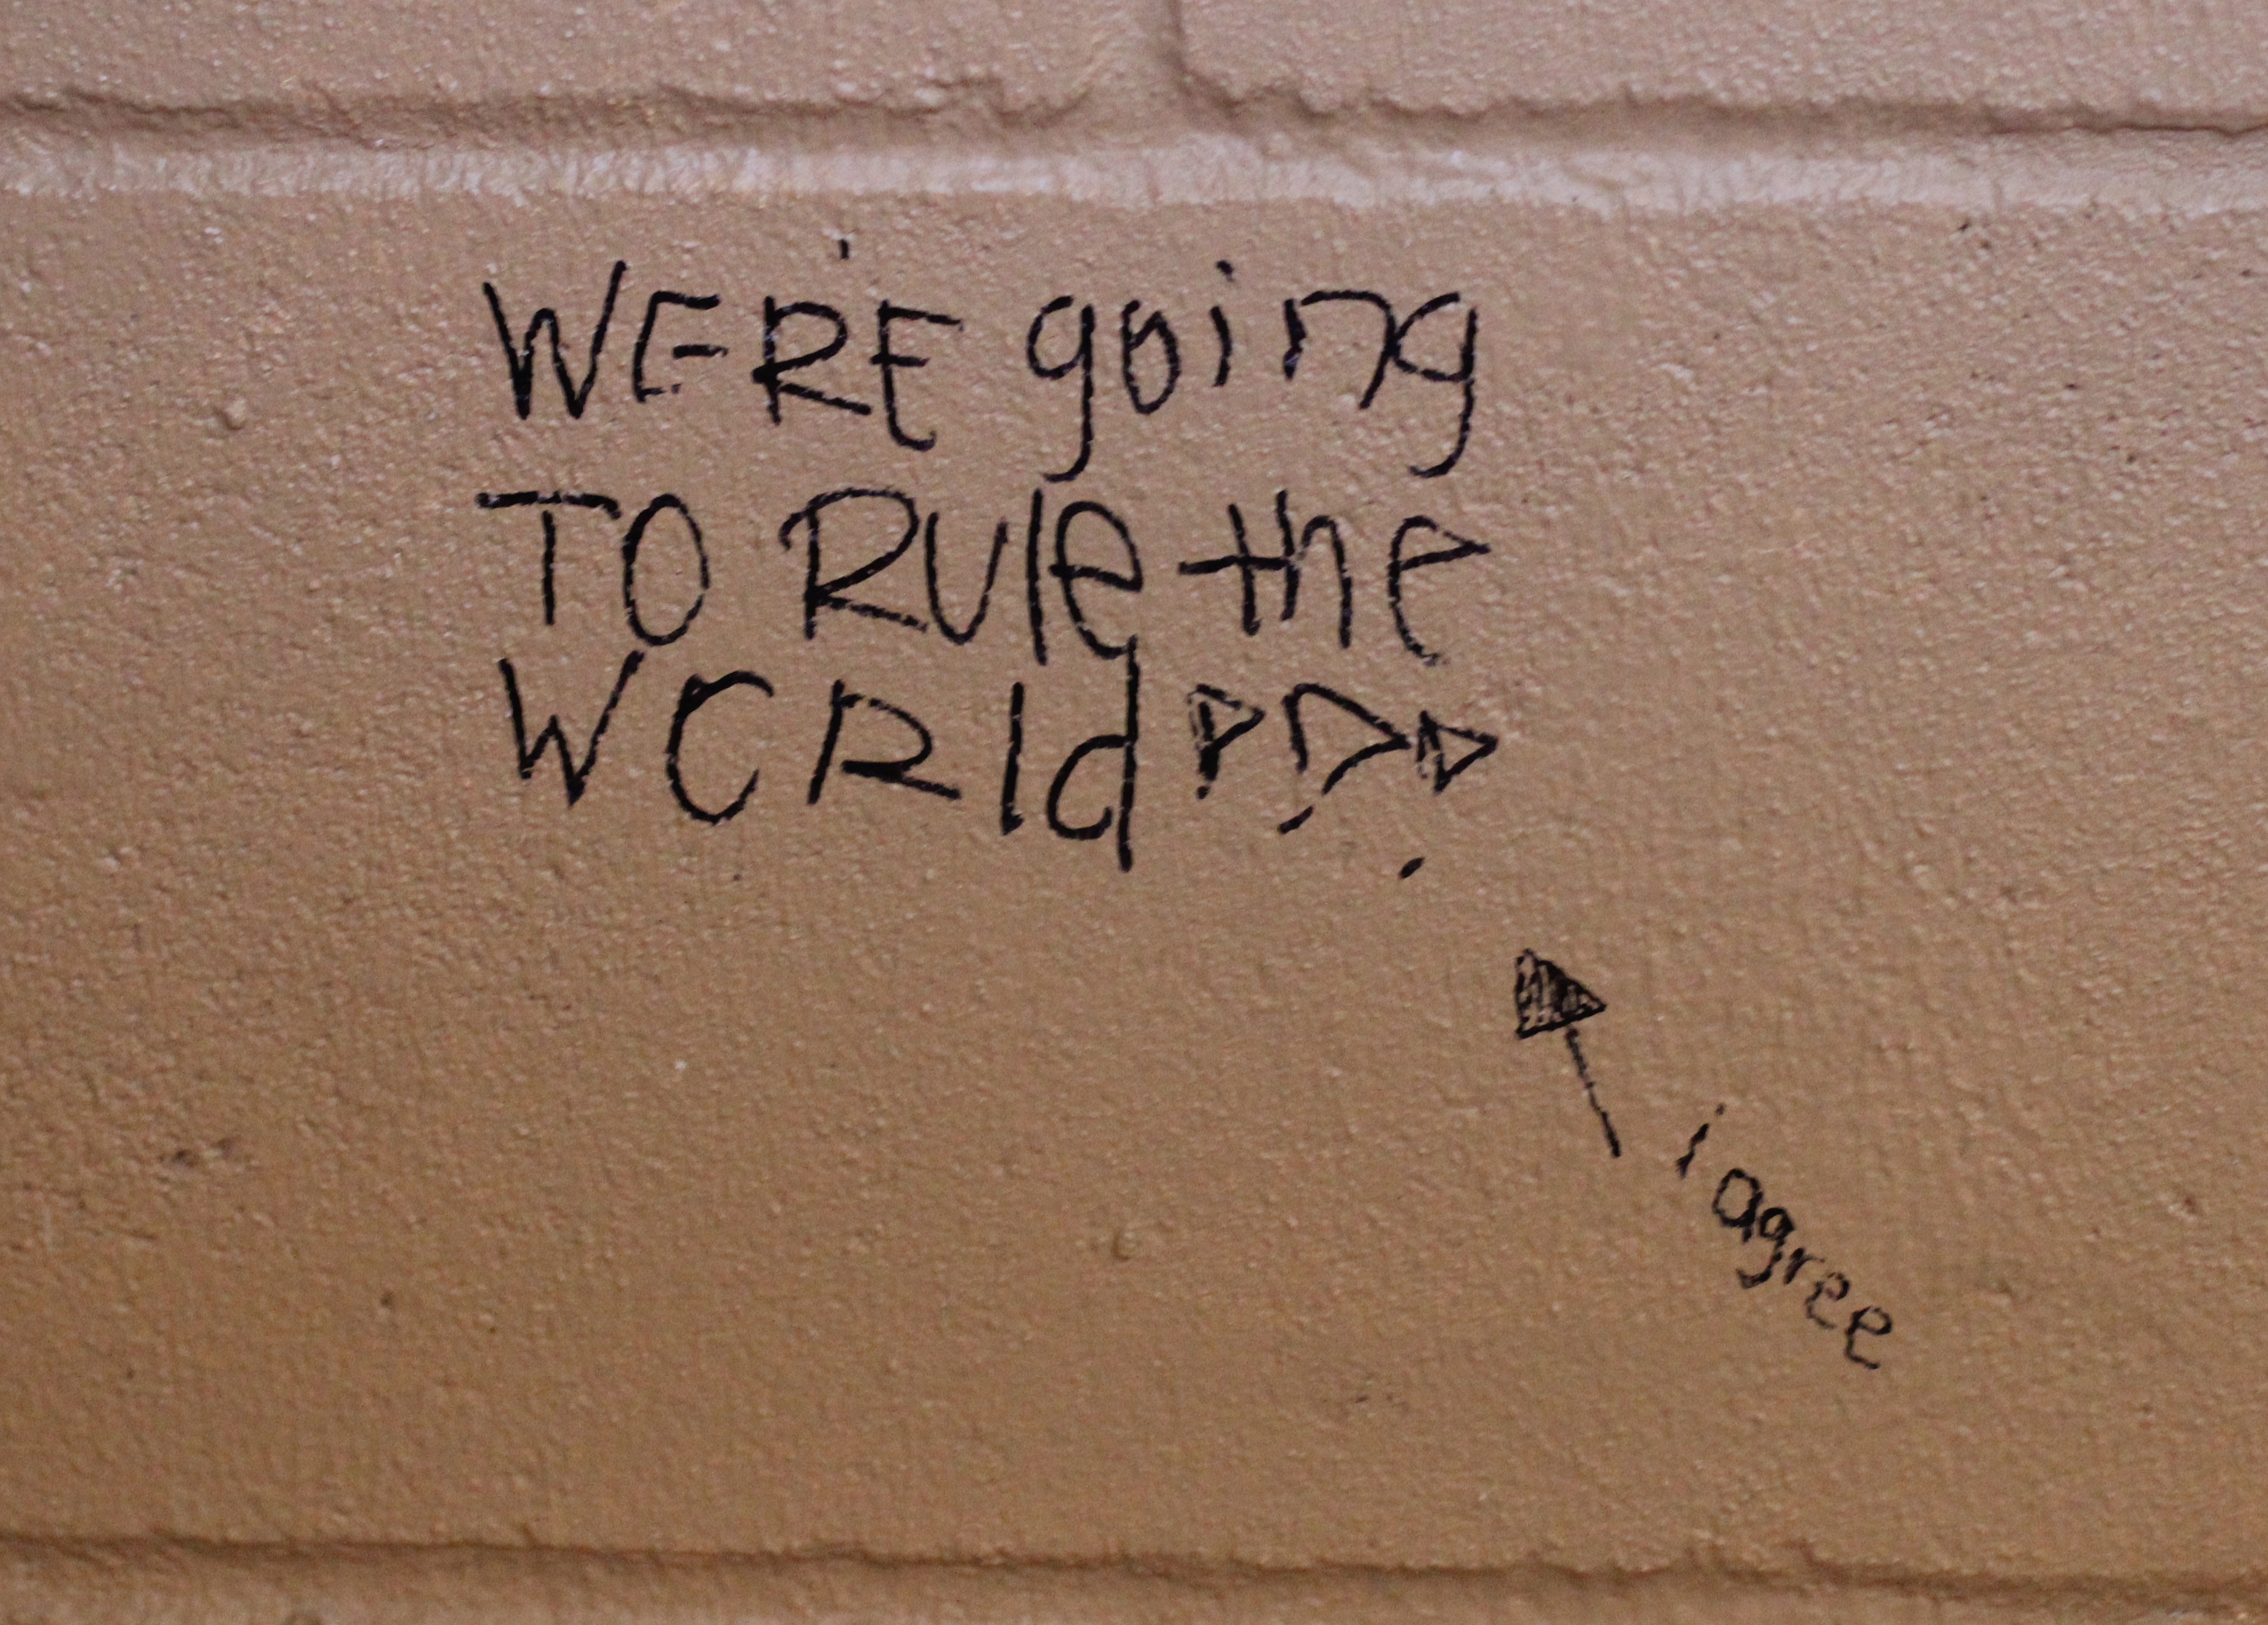 WE'RE going
TO RUle the
WORld
i agree